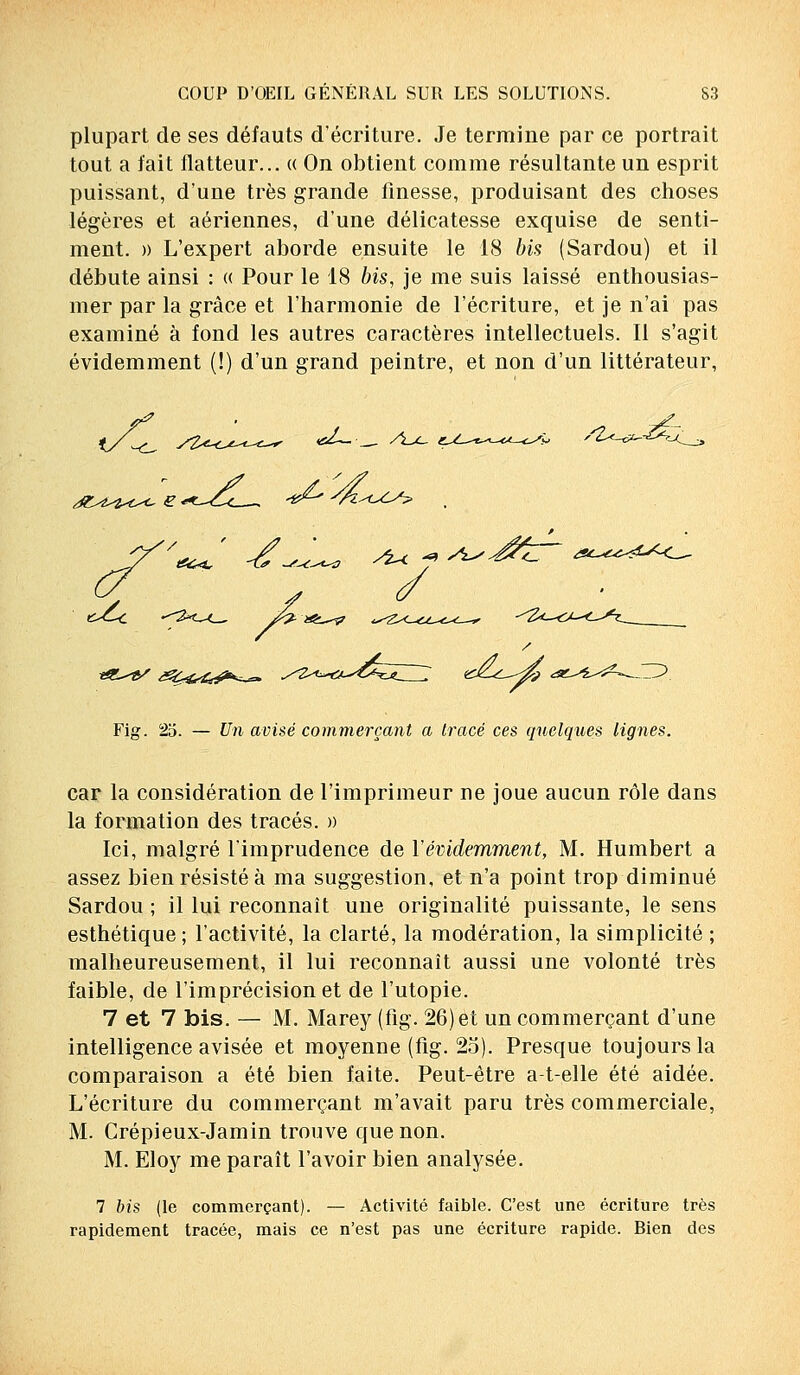 COUP D'OEIL GÉNÉRAL SUR LES SOLUTIONS. 83
plupart de ses défauts d'écriture. Je termine par ce portrait
tout a fait flatteur... « On obtient comme résultante un esprit
puissant, d'une très grande finesse, produisant des choses
légères et aériennes, d'une délicatesse exquise de senti-
ment. » L'expert aborde ensuite le 18 bis (Sardou) et il
débute ainsi : « Pour le 18 bis, je me suis laissé enthousias-
mer par la grâce et l'harmonie de l'écriture, et je n'ai pas
examiné à fond les autres caractères intellectuels. Il s'agit
évidemment (!) d'un grand peintre, et non d'un littérateur,
Fig. 25. — Un avisé commerçant a tracé ces quelques lignes.
car la considération de l'imprimeur ne joue aucun rôle dans
la formation des tracés. »
Ici, malgré l'imprudence de l'évidemment, M. Humbert a
assez bien résisté à ma suggestion, et n'a point trop diminué
Sardou ; il lui reconnaît une originalité puissante, le sens
esthétique ; l'activité, la clarté, la modération, la simplicité ;
malheureusement, il lui reconnaît aussi une volonté très
faible, de l'imprécision et de l'utopie.
7 et 7 bis. — M. Marey (fig. 26) et un commerçant d'une
intelligence avisée et moyenne (fig. 25). Presque toujours la
comparaison a été bien faite. Peut-être a-t-elle été aidée.
L'écriture du commerçant m'avait paru très commerciale,
M. Crépieux-Jamin trouve que non.
M. Eloy me paraît l'avoir bien analysée.
7 bis (le commerçant). — Activité faible. C'est une écriture très
rapidement tracée, mais ce n'est pas une écriture rapide. Bien des